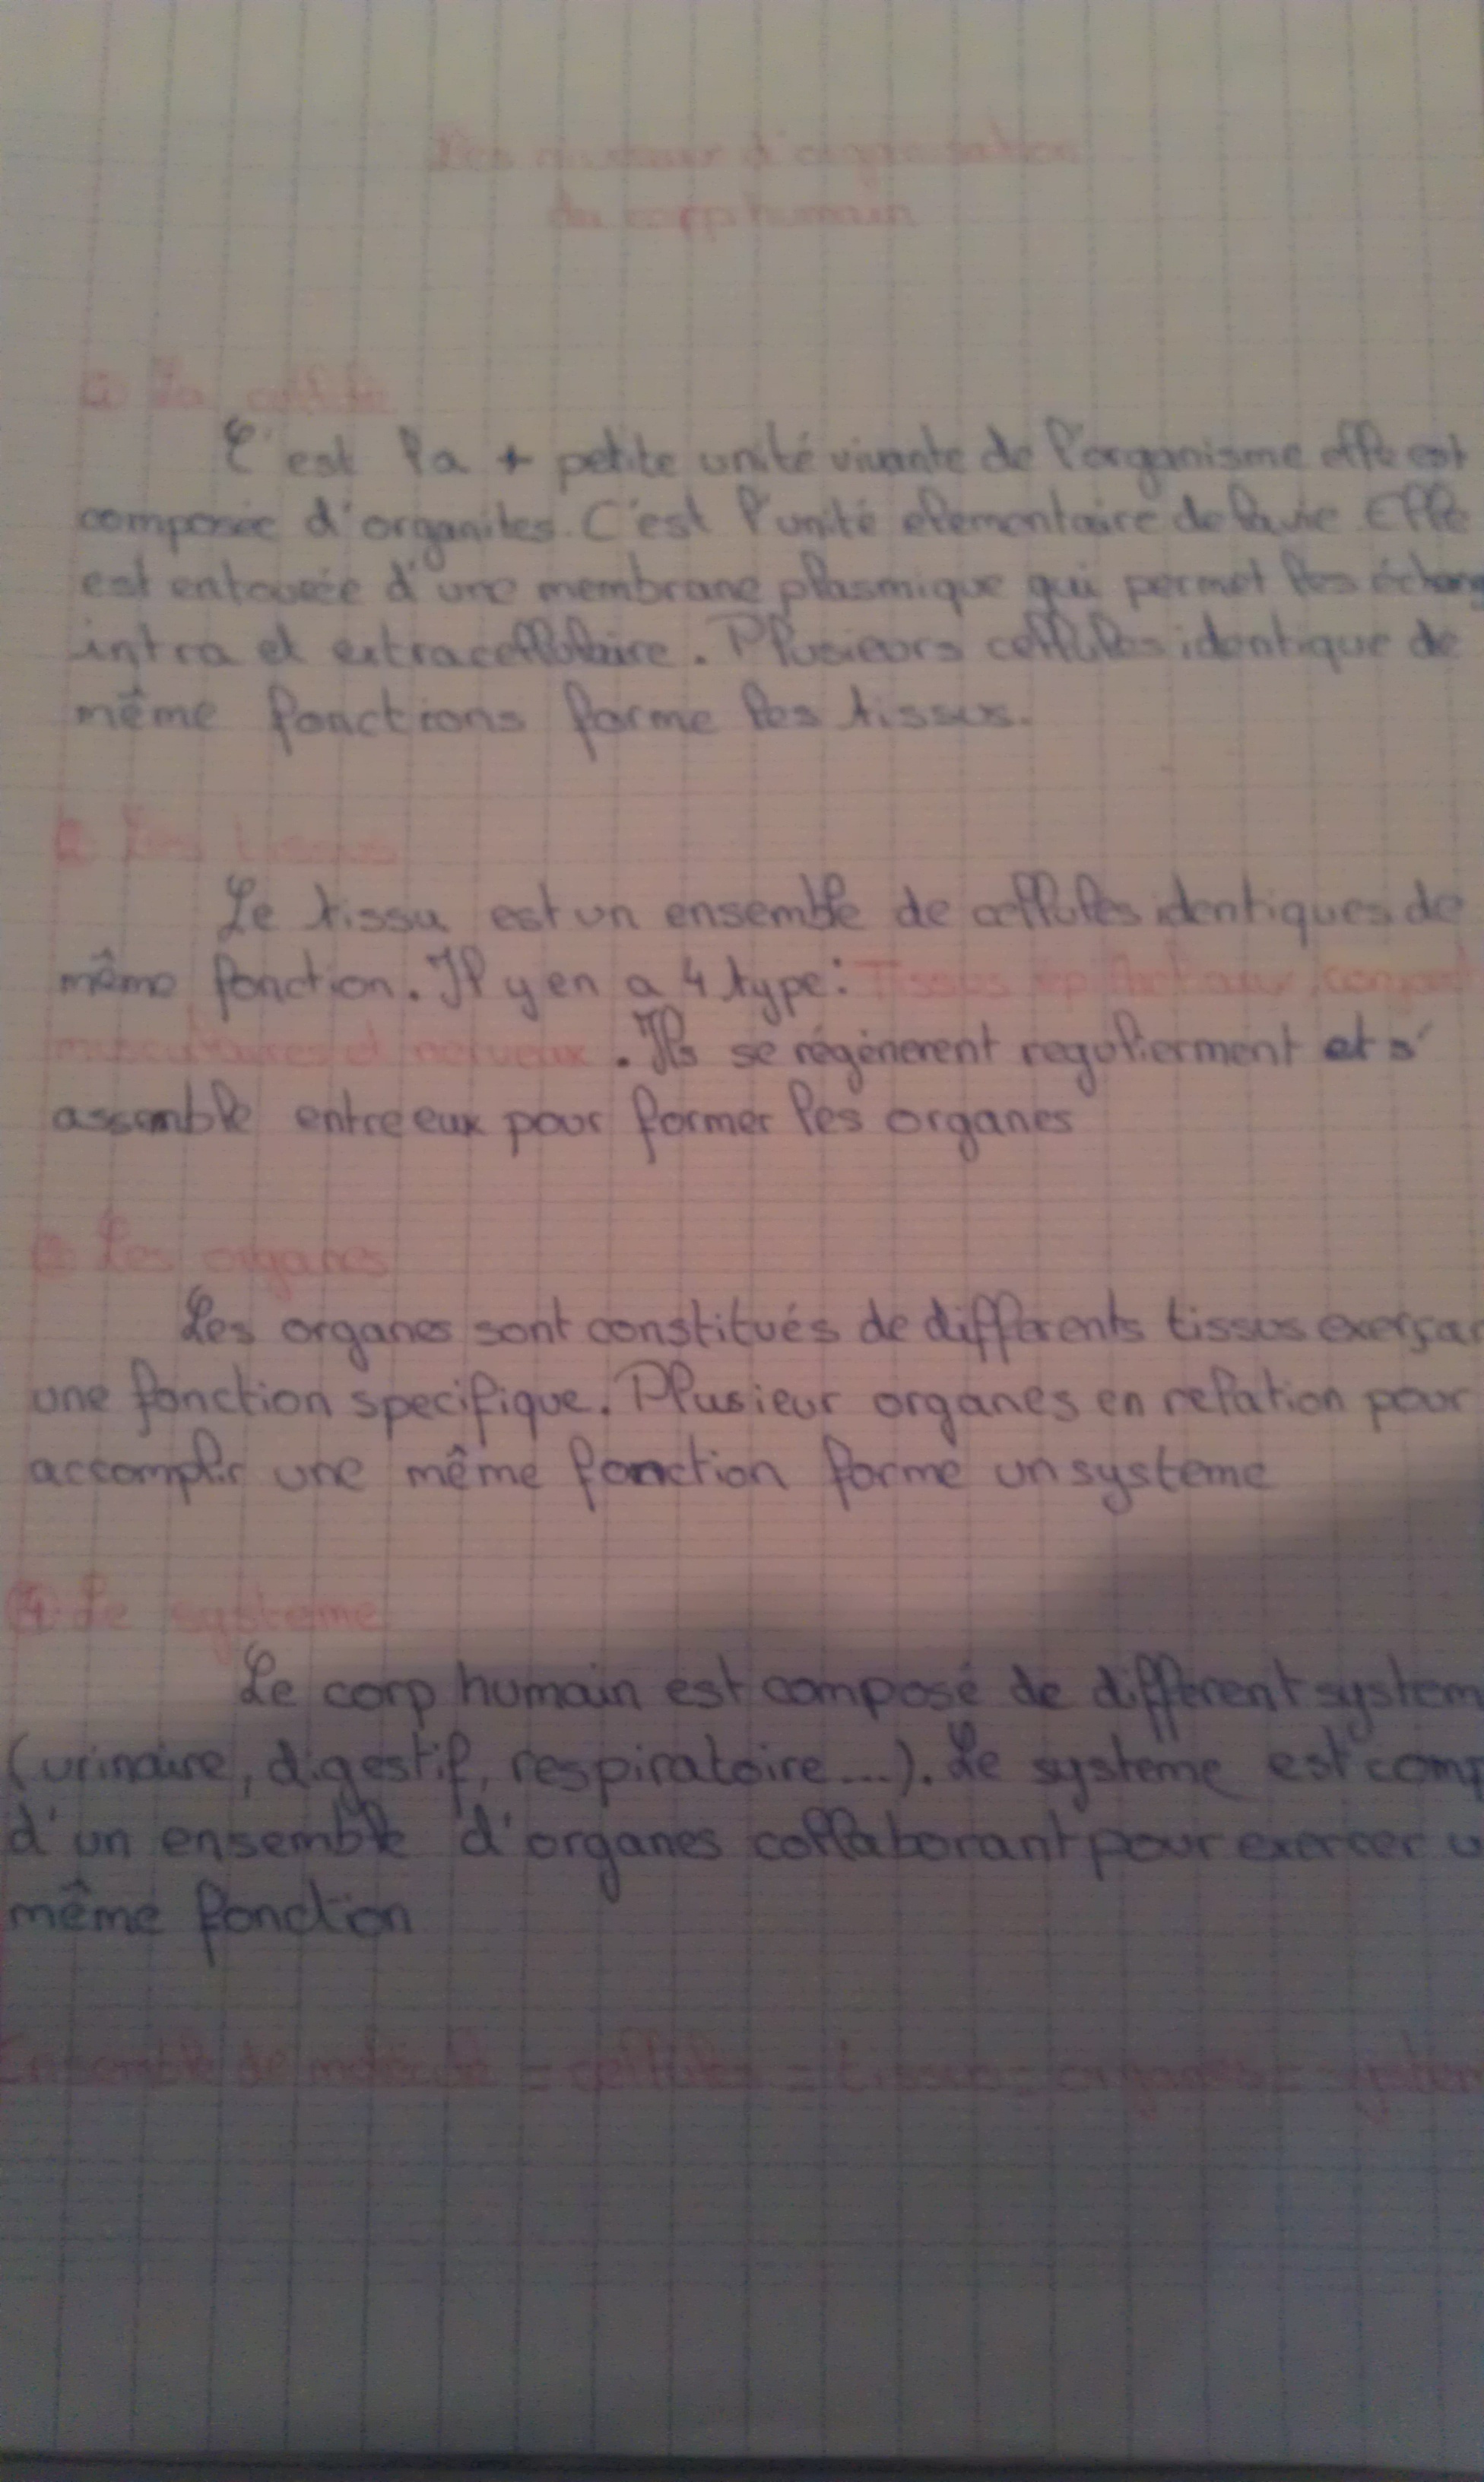 Les niveaux d'organisation
du corp humain
① La cellule
C'est la + petite unité vivante de l'organisme elle est
composée d'organites. C'est l'unité elementaire de la vie Elle
est entourée d'une membrane plasmique qui permet les échang
intra et extracellulaire. Plusieurs cellules identique de
même fonctions forme les tissus.
2 Les tissus
Le tissu est un ensemble de cellules identiques de
même fonction. Il y en a 4 type: Tissus épithéliaux, conjonct
musculaires et nerveux. Ils se régénerent regulierment et s'
assemble entre eux pour former les organes
③ Les organes
Les organes sont constitués de différents tissus exerçan
une fonction specifique. Plusieur organes en relation pour
accomplir une même fonction forme un systeme
④ Le systeme
Le corp humain est composé de différent system
(urinaire, digestif, respiratoire...). Le systeme est comp
d'un ensemble d'organes collaborant pour exercer u
même fonction
Ensemble de molécule = cellules = tissus = organes = system